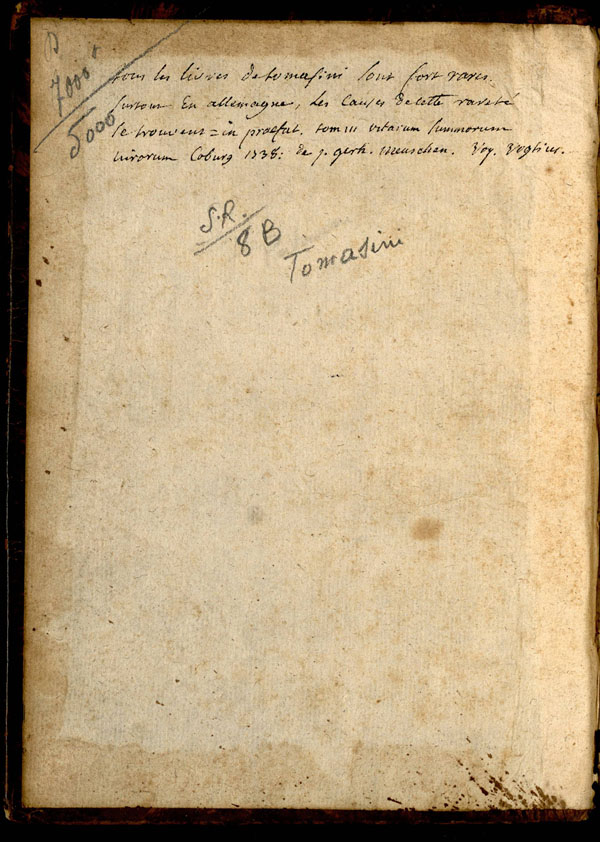 7000
5000
tous les livres de tomasini sont fort rares.
surtout En allemagne, Les Causes de cette rareté
se trouvent = in praefat. tom III vitarum summorum
virorum Coburg 1738: de j. gerh. meuschen. Voy. Vogtius.
S.R.
8 B
Tomasini